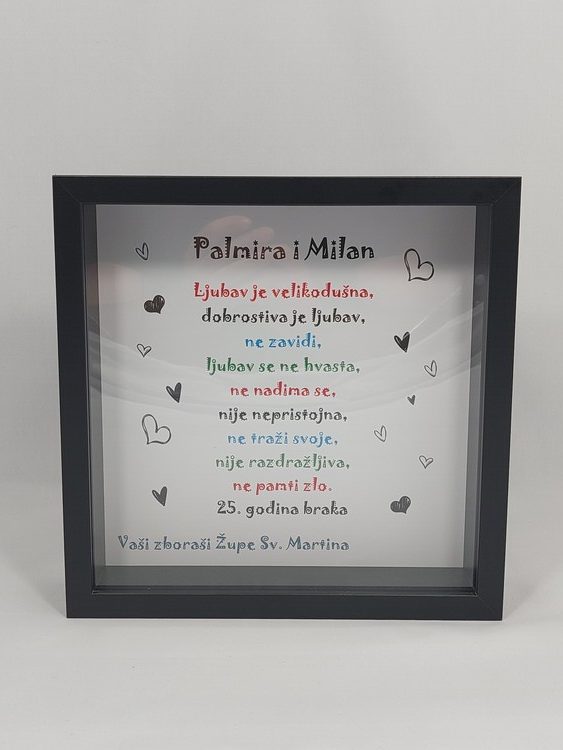 Palmira i Milan
Ljubav je velikodušna,
dobrostiva je ljubav,
ne zavidi,
ljubav se ne hvasta,
ne nadima se,
nije nepristojna,
ne traži svoje,
nije razdražljiva,
ne pamti zlo.
25. godina braka
Vaši zboraši Župe Sv. Martina